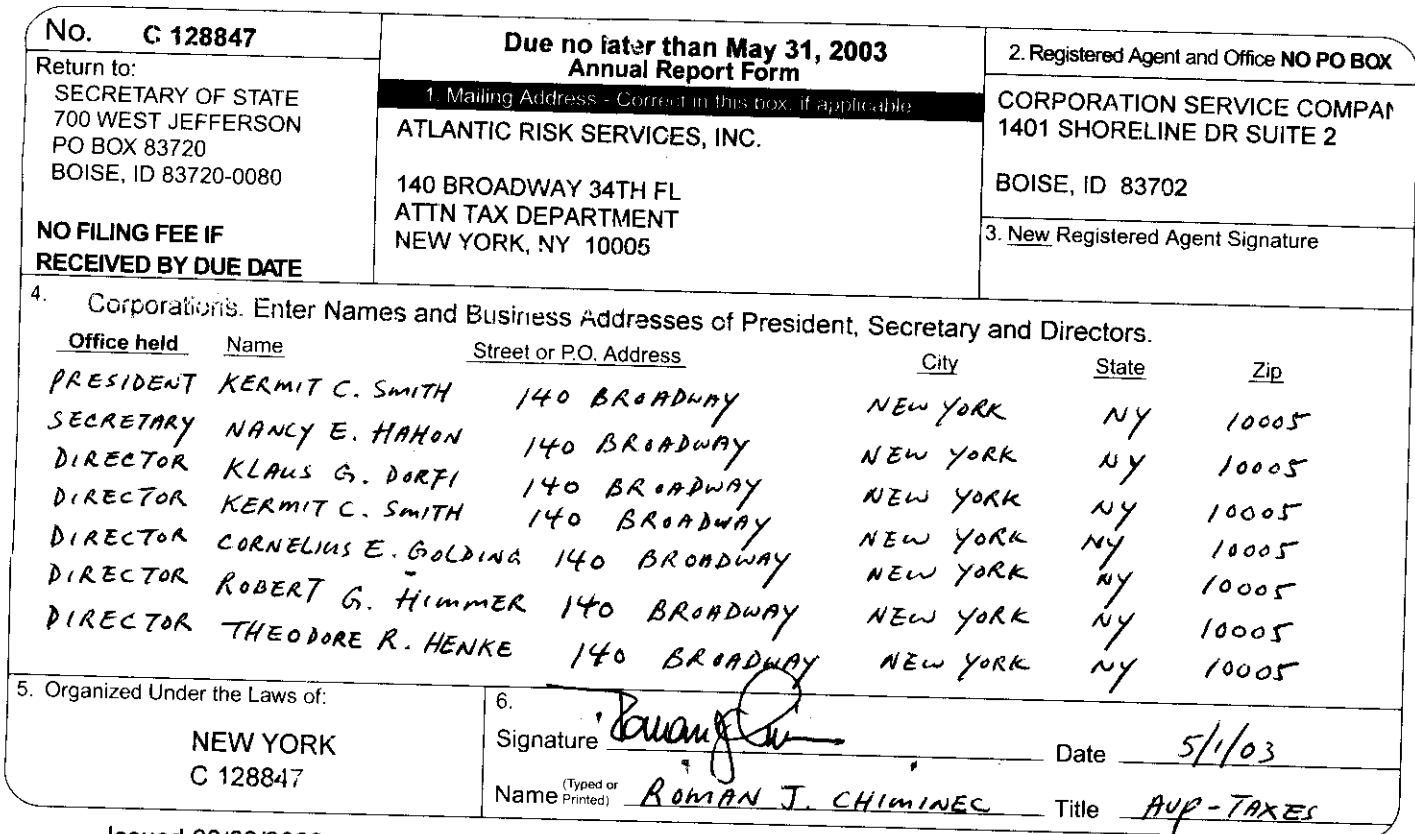 No. C 128847
Return to:
SECRETARY OF STATE
700 WEST JEFFERSON
PO BOX 83720
BOISE, ID 83720-0080
NO FILING FEE IF
RECEIVED BY DUE DATE
Due no later than May 31, 2003
Annual Report Form
1. Mailing Address - Correct in this box, if applicable
ATLANTIC RISK SERVICES, INC.
140 BROADWAY 34TH FL
ATTN TAX DEPARTMENT
NEW YORK, NY 10005
2. Registered Agent and Office NO PO BOX
CORPORATION SERVICE COMPAN
1401 SHORELINE DR SUITE 2
BOISE, ID 83702
3. New Registered Agent Signature
4. Corporations. Enter Names and Business Addresses of President, Secretary and Directors.
Office held Name Street or P.O. Address City State Zip
PRESIDENT KERMIT C. SMITH 140 BROADWAY NEW YORK NY 10005
SECRETARY NANCY E. HAHON 140 BROADWAY NEW YORK NY 10005
DIRECTOR KLAUS G. DORFI 140 BROADWAY NEW YORK NY 10005
DIRECTOR KERMIT C. SMITH 140 BROADWAY NEW YORK NY 10005
DIRECTOR CORNELIUS E. GOLDING 140 BROADWAY NEW YORK NY 10005
DIRECTOR ROBERT G. HIMMER 140 BROADWAY NEW YORK NY 10005
DIRECTOR THEODORE R. HENKE 140 BROADWAY NEW YORK NY 10005
5. Organized Under the Laws of:
NEW YORK
C 128847
6.
Signature Date 5/1/03
Name (Typed or Printed) ROMAN J. CHIMINEC Title AVP-TAXES